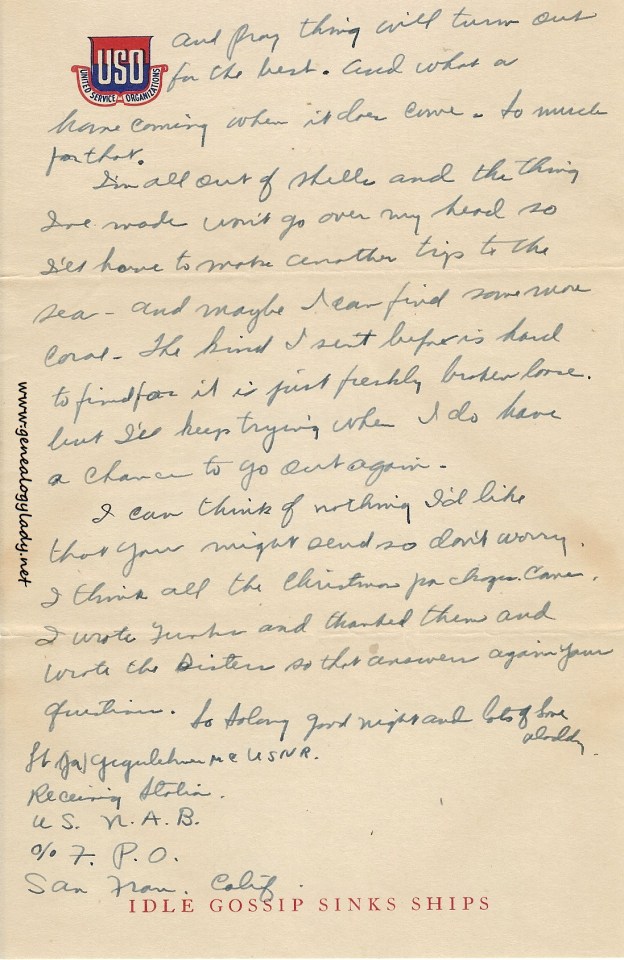 USO
UNITED SERVICE ORGANIZATIONS
and pray thing will turn out
for the best. And what a
home coming when it does come. So much
for that.
I'm all out of shells and the thing
I've made won't go over my head so
I'll have to make another trip to the
sea - and maybe I can find some more
coral - The kind I sent before is hard
to find for it is just freshly broken loose.
but I'll keep trying when I do have
a chance to go out again.
I can think of nothing I'd like
that you might send so don't worry.
I think all the Christmas packages came.
I wrote and thanked them and
wrote the Sisters so that answers again your
question. So solong good night and lots of love
Daddy.
Lt (jg) MC USNR.
Receiving Station.
U.S. N.A.B.
c/o F. P.O.
San Fran. Calif.
IDLE GOSSIP SINKS SHIPS
www.genealogylady.net